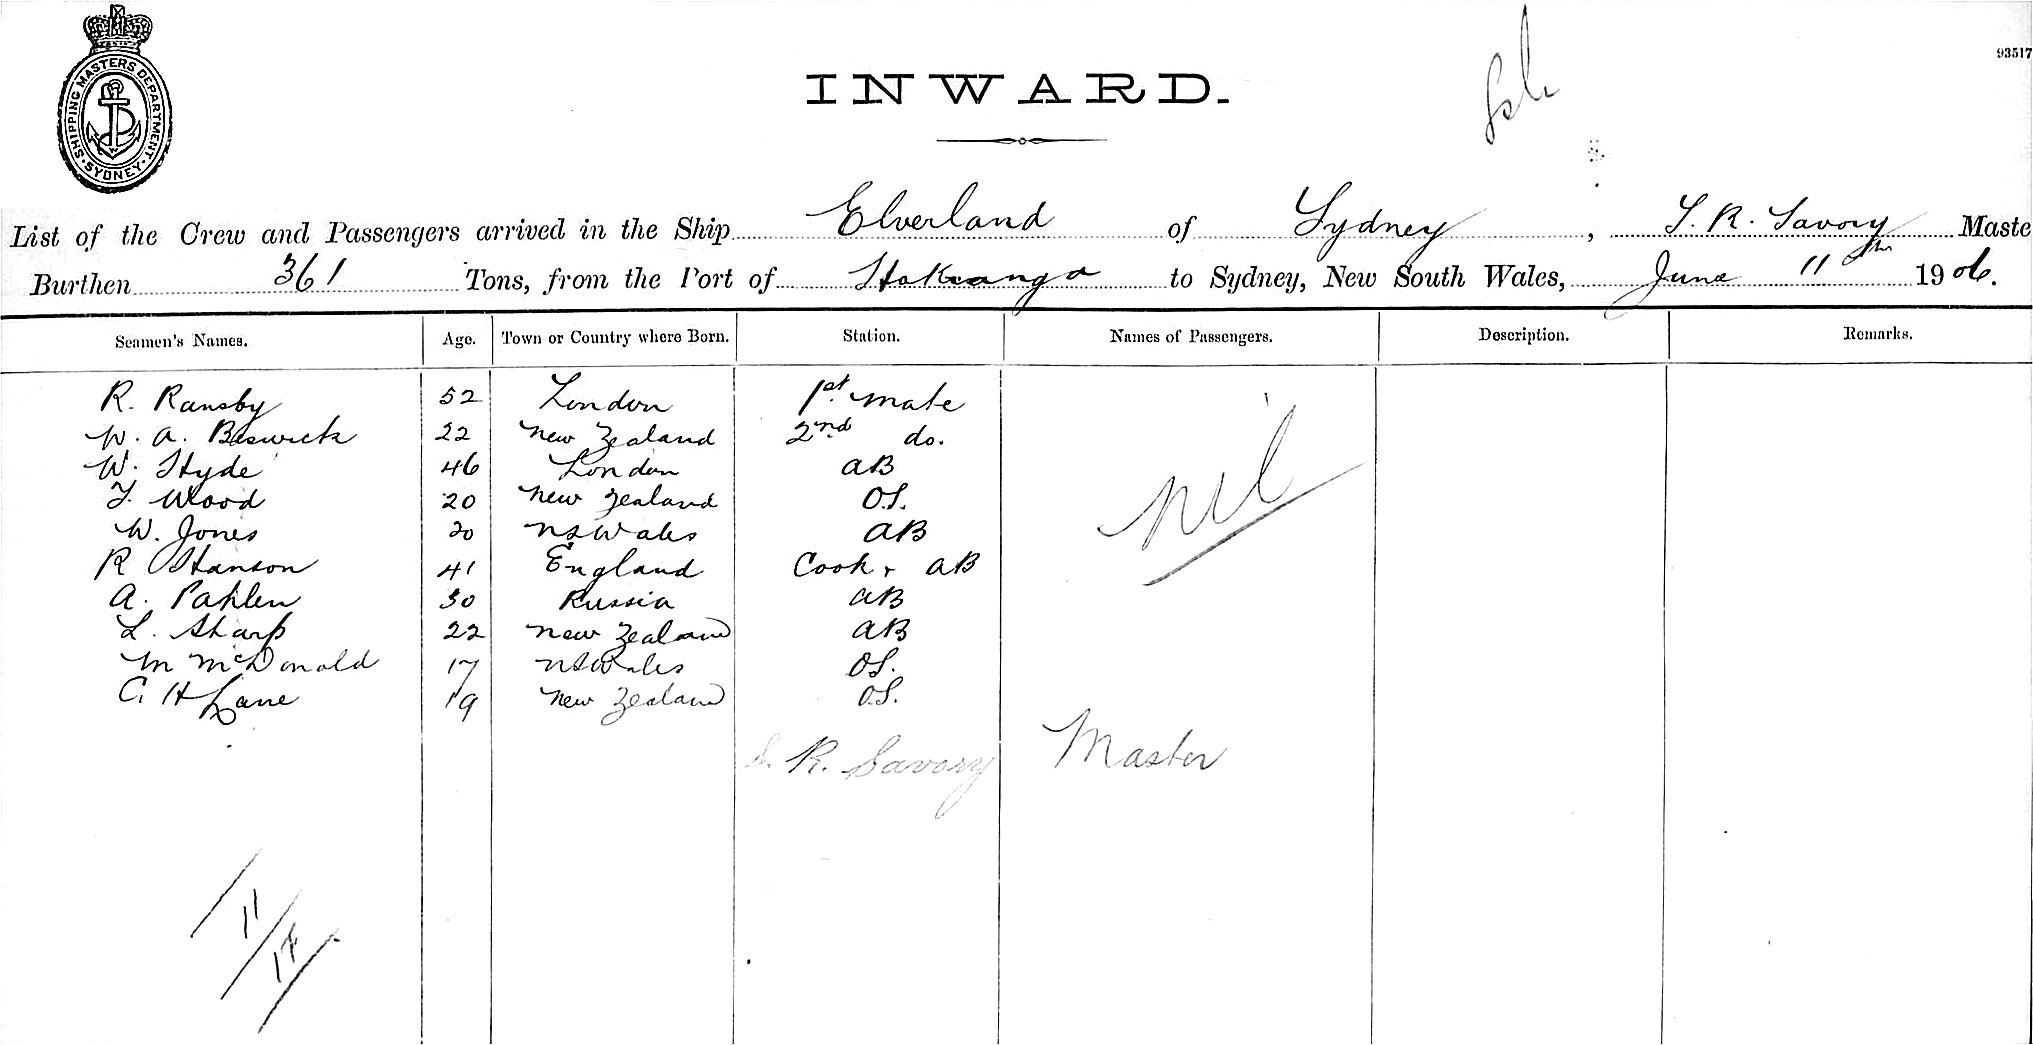 93517
SHIPPING MASTERS DEPARTMENT · SYDNEY ·
INWARD.
List of the Crew and Passengers arrived in the Ship Elverland of Sydney, S. R. Savory Maste
Burthen 361 Tons, from the Port of Hokianga to Sydney, New South Wales, June 11th 1906.
Seamen's Names. Age. Town or Country where Born. Station. Names of Passengers. Description. Remarks.
R. Ransby 52 London 1st mate
W. A. Beswick 22 New Zealand 2nd do.
W. Hyde 46 London AB
F. Wood 20 New Zealand O.S.
W. Jones 20 NSWales AB
R Hanson 41 England Cook + AB
A. Pahlen 30 Russia AB
L. Sharp 22 New Zealand AB
M McDonald 17 NSWales OS.
C. H Lane 19 New Zealand O.S.
Nil
S. R. Savory Master
11